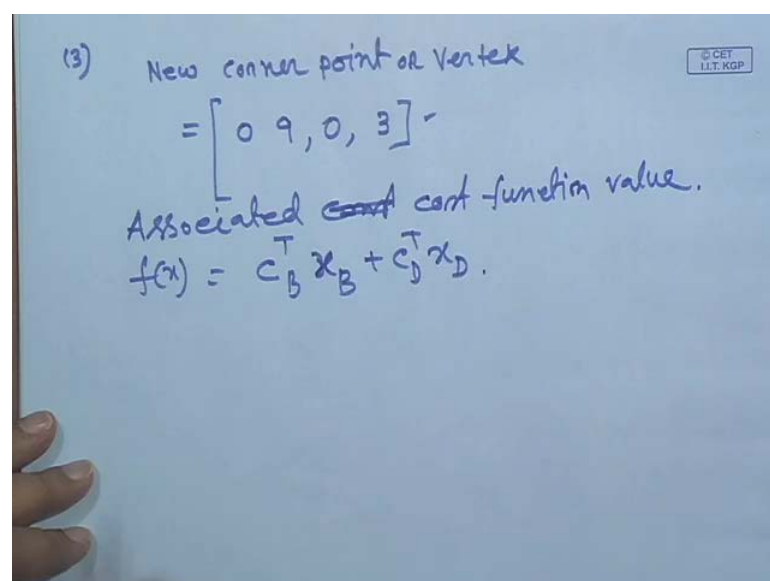 (3) New corner point or vertex
© CET
I.I.T. KGP
= [ 0 9, 0, 3 ]
Associated cost function value.
f(x) = C_B^T x_B + C_D^T x_D.